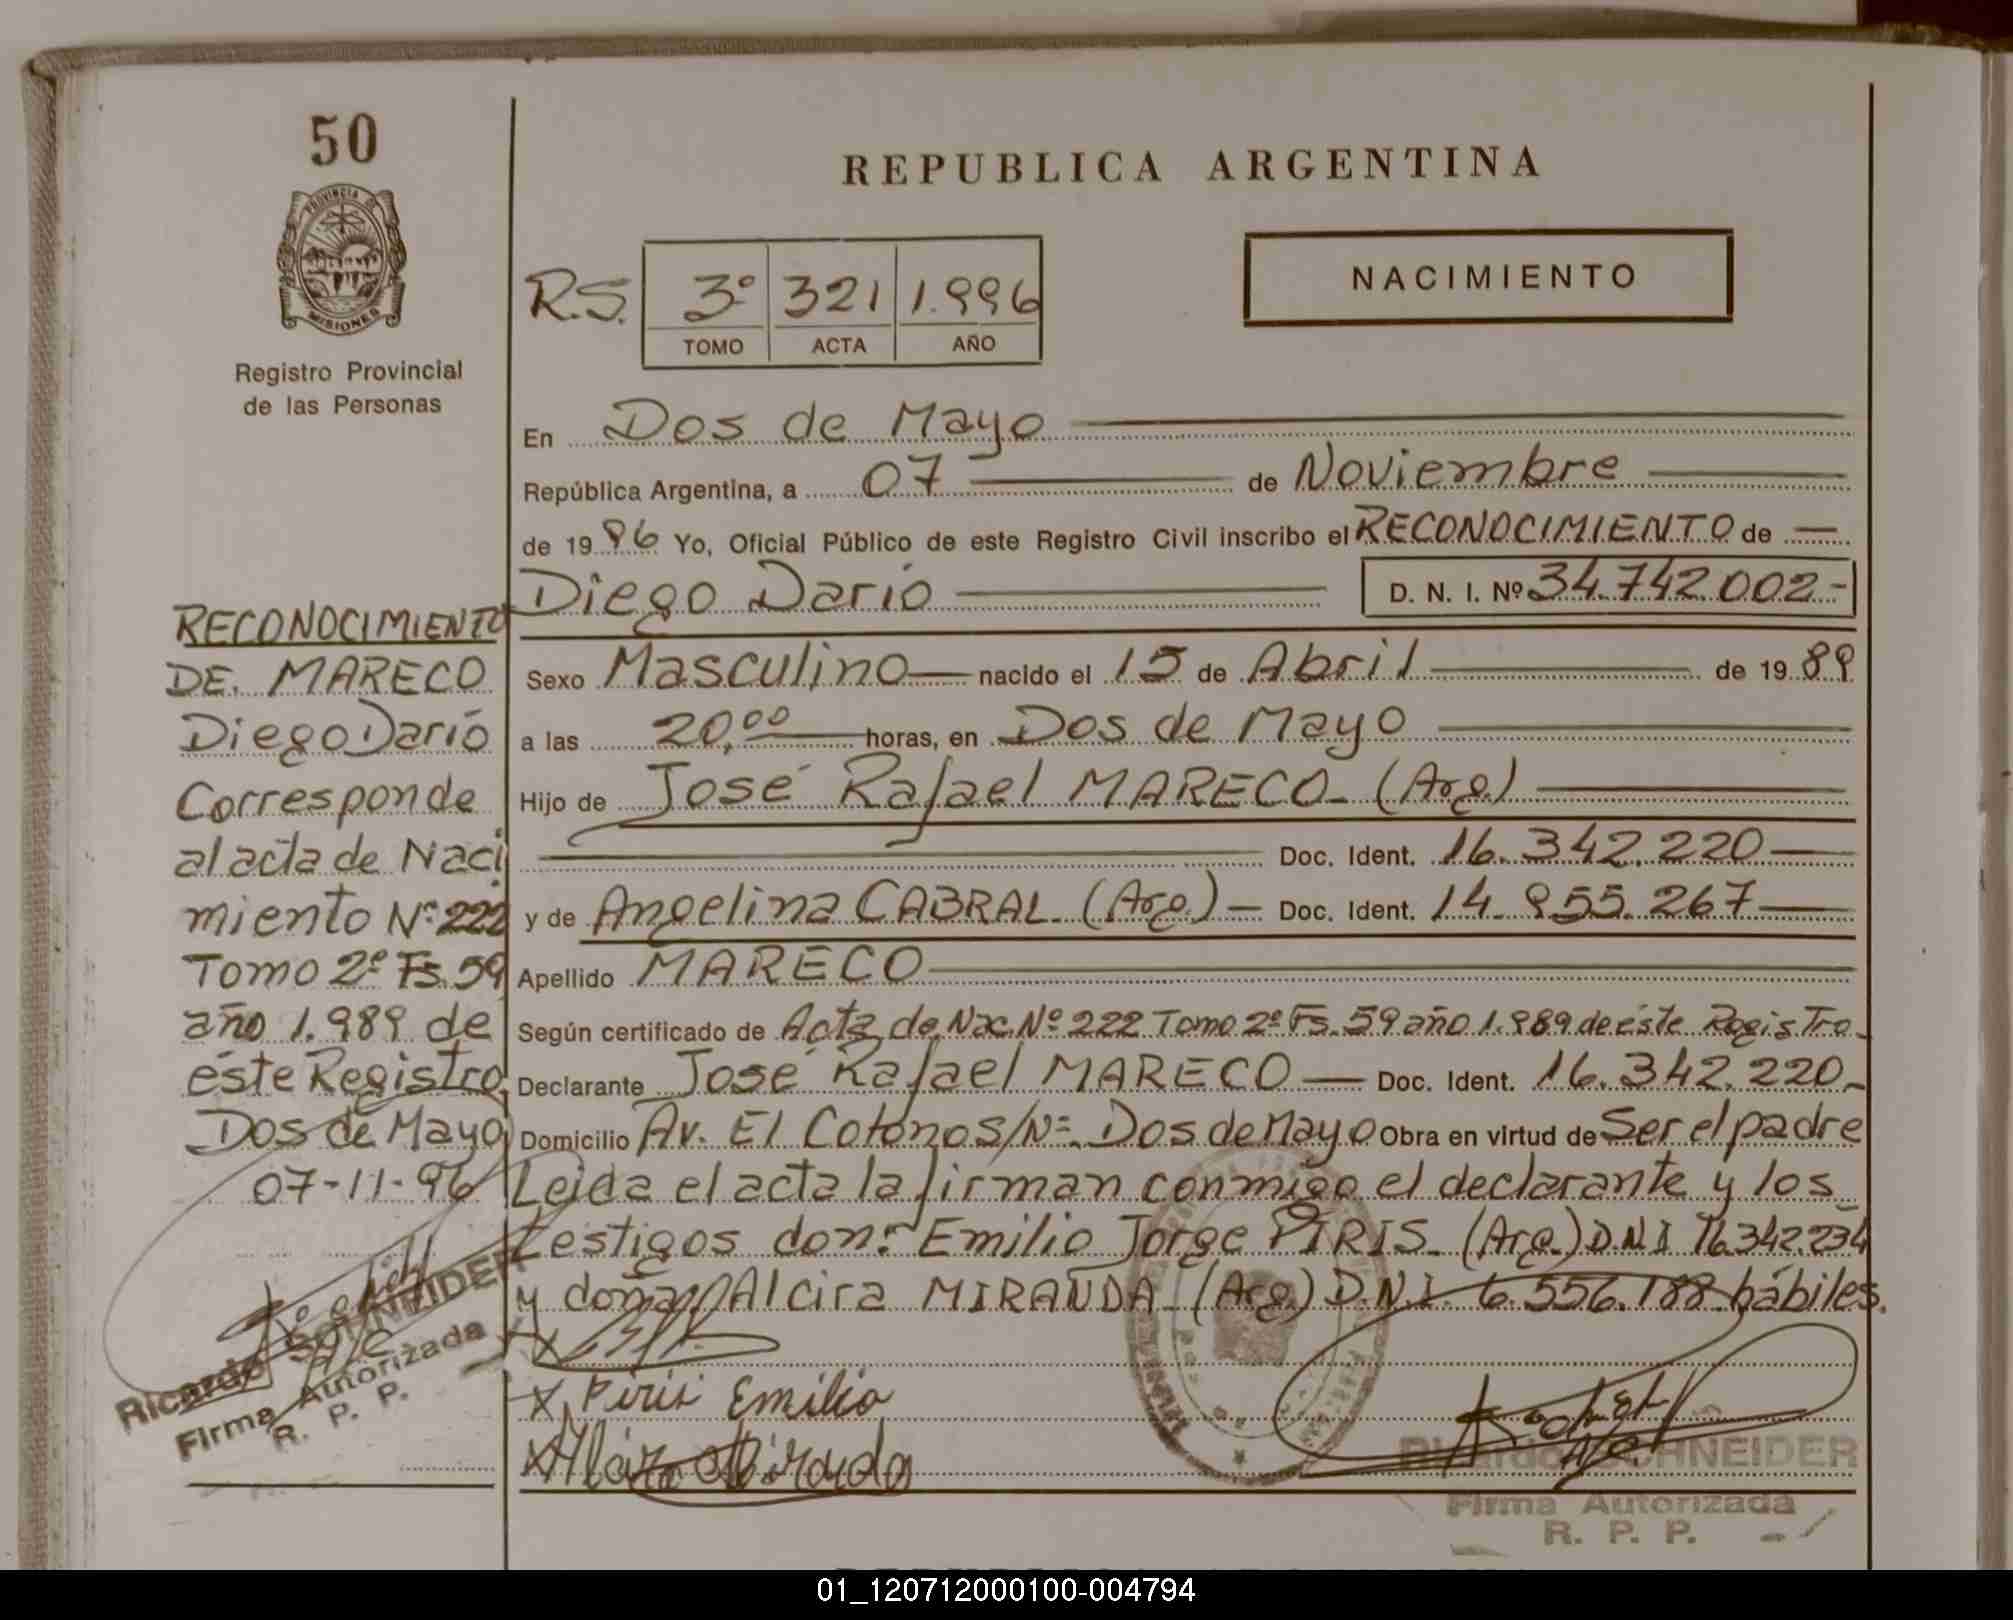 50
PROVINCIA DE
MISIONES
Registro Provincial
de las Personas
RECONOCIMIENTO
DE. MARECO
Diego Darío
Corresponde
al acta de Naci
miento Nº 222
Tomo 2º Fs. 59
año 1.989 de
éste Registro.
Dos de Mayo
07-11-96
Ricardo SCHNEIDER
Firma Autorizada
R. P. P.
REPUBLICA ARGENTINA
R.S. 3º 321 1.996
TOMO ACTA AÑO
NACIMIENTO
En Dos de Mayo
República Argentina, a 07 de Noviembre
de 1996 Yo, Oficial Público de este Registro Civil inscribo el RECONOCIMIENTO de
Diego Darío D. N. I. Nº 34.742.002-
Sexo Masculino nacido el 15 de Abril de 1989
a las 20,00 horas, en Dos de Mayo
Hijo de José Rafael MARECO- (Arg.)
Doc. Ident. 16.342.220
y de Angelina CABRAL (Arg.) - Doc. Ident. 14.955.267
Apellido MARECO
Según certificado de Acta de Nac. Nº 222 Tomo 2º Fs. 59 año 1.989 de éste Registro-
Declarante José Rafael MARECO Doc. Ident. 16.342.220-
Domicilio Av. El Cotono S/Nº- Dos de Mayo Obra en virtud de Ser el padre
Leida el acta la firman conmigo el declarante y los
testigos don: Emilio Jorge PIRIS. (Arg.) D.N.I 16.342.234
y doña Alcira MIRANDA (Arg.) D.N.I. 6.556.188 hábiles.
x
x Piris Emilio
x Alcira Miranda
Ricardo SCHNEIDER
Firma Autorizada
R. P. P.
01_120712000100-004794